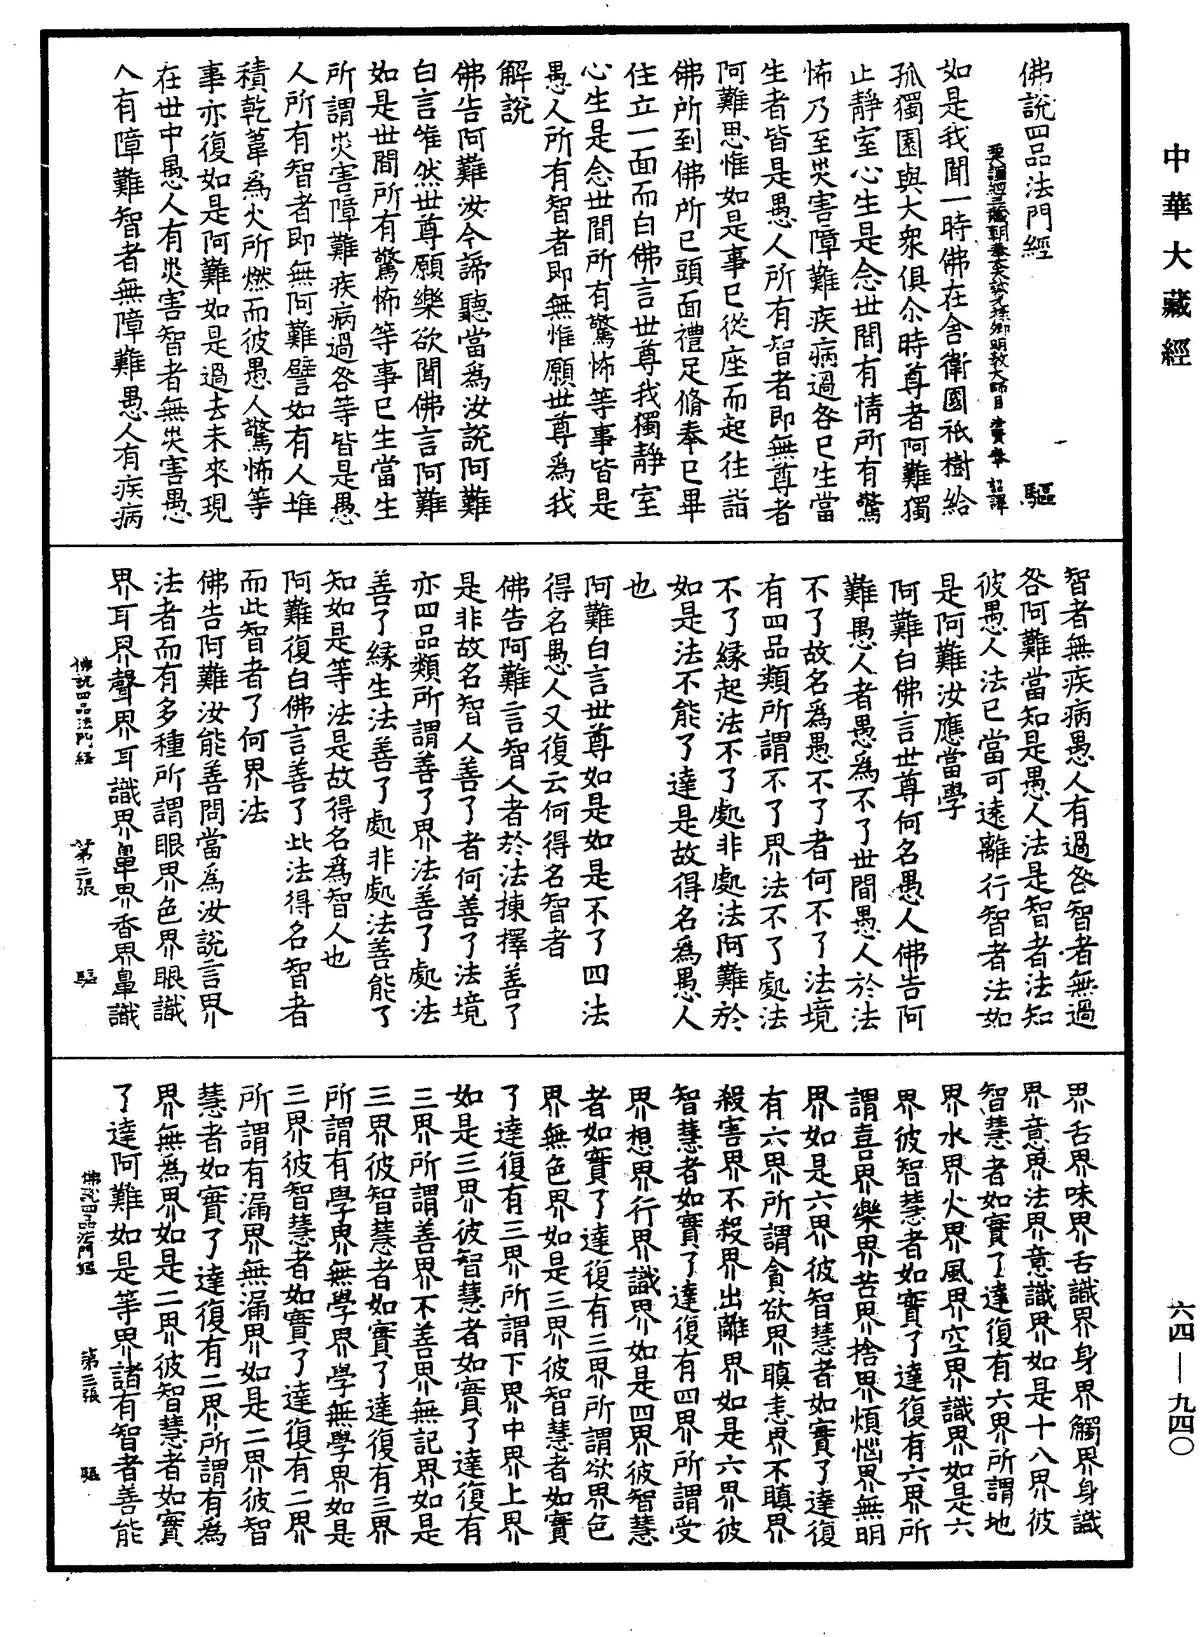 中華大藏經
佛說四品法門經　驅
如是我聞一時佛在舍衛國祇樹給
孤獨園與大衆俱尒時尊者阿難獨
止靜室心生是念世間有情所有驚
怖乃至災害障難疾病過咎已生當
生者皆是愚人所有智者即無尊者
阿難思惟如是事已從座而起往詣
佛所到佛所已頭面禮足脩奉已畢
住立一面而白佛言世尊我獨靜室
心生是念世間所有驚怖等事皆是
愚人所有智者即無惟願世尊爲我
解說
佛告阿難汝今諦聽當爲汝說阿難
白言唯然世尊願樂欲聞佛言阿難
如是世間所有驚怖等事已生當生
所謂災害障難疾病過咎等皆是愚
人所有智者即無阿難譬如有人堆
積乾葦爲火所燃而彼愚人驚怖等
事亦復如是阿難如是過去未來現
在世中愚人有災害智者無災害愚
人有障難智者無障難愚人有疾病
智者無疾病愚人有過咎智者無過
咎阿難當知是愚人法是智者法知
彼愚人法已當可遠離行智者法如
是阿難汝應當學
阿難白佛言世尊何名愚人佛告阿
難愚人者愚爲不了世間愚人於法
不了故名爲愚不了者何不了法境
有四品類所謂不了界法不了處法
不了緣起法不了處非處法阿難於
如是法不能了達是故得名爲愚人
也
阿難白言世尊如是如是不了四法
得名愚人又復云何得名智者
佛告阿難言智人者於法揀擇善了
是非故名智人善了者何善了法境
亦四品類所謂善了界法善了處法
善了緣生法善了處非處法善能了
知如是等法是故得名爲智人也
阿難復白佛言善了此法得名智者
而此智者了何界法
佛告阿難汝能善問當爲汝說言界
法者而有多種所謂眼界色界眼識
界耳界聲界耳識界鼻界香界鼻識
佛說四品法門經　第二張　驅
界舌界味界舌識界身界觸界身識
界意界法界意識界如是十八界彼
智慧者如實了達復有六界所謂地
界水界火界風界空界識界如是六
界彼智慧者如實了達復有六界所
謂喜界樂界苦界捨界煩惱界無明
界如是六界彼智慧者如實了達復
有六界所謂貪欲界瞋恚界不瞋界
殺害界不殺界出離界如是六界彼
智慧者如實了達復有四界所謂受
界想界行界識界如是四界彼智慧
者如實了達復有三界所謂欲界色
界無色界如是三界彼智慧者如實
了達復有三界所謂下界中界上界
如是三界彼智慧者如實了達復有
三界所謂善界不善界無記界如是
三界彼智慧者如實了達復有三界
所謂有學界無學界學無學界如是
三界彼智慧者如實了達復有二界
所謂有漏界無漏界如是二界彼智
慧者如實了達復有二界所謂有為
界無為界如是二界彼智慧者如實
了達阿難如是等界諸有智者善能
佛說四品法門經　第三張　驅
六四—九四〇